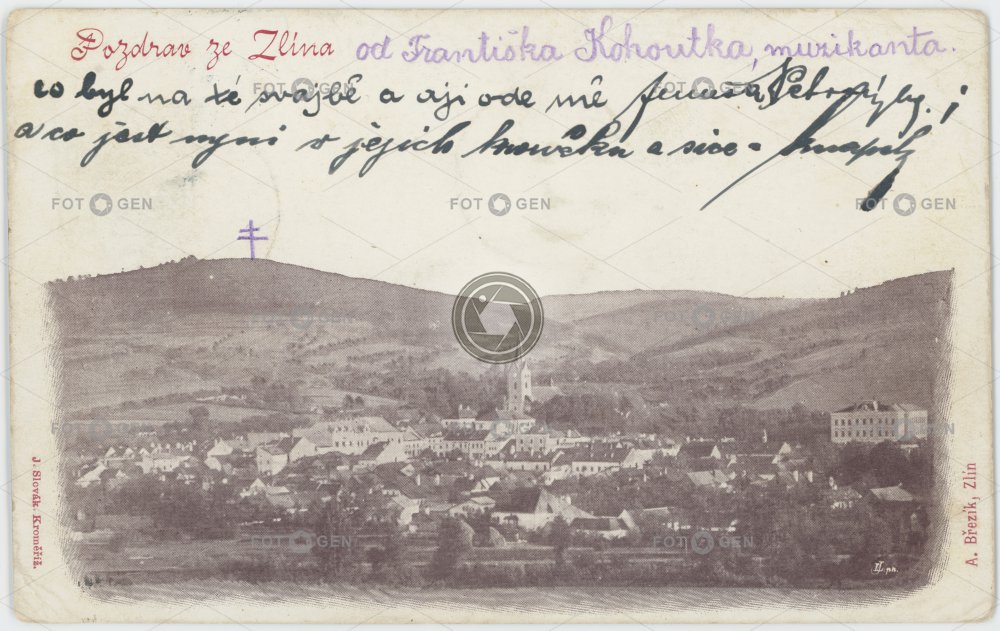 Pozdrav ze Zlína od Františka Kohoutka, muzikanta.
co byl na té svajbě a aji ode mě
a co jest nyni v jejich a sice -
J. Slovák, Kroměříž.
A. Březík, Zlín
FOTOGEN